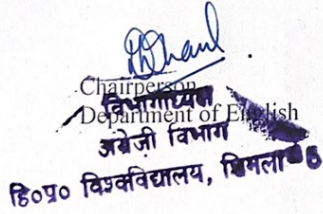 Chairperson
विभागाध्यक्ष
Department of English
अंग्रेजी विभाग
हि०प्र० विश्वविद्यालय, शिमला-5